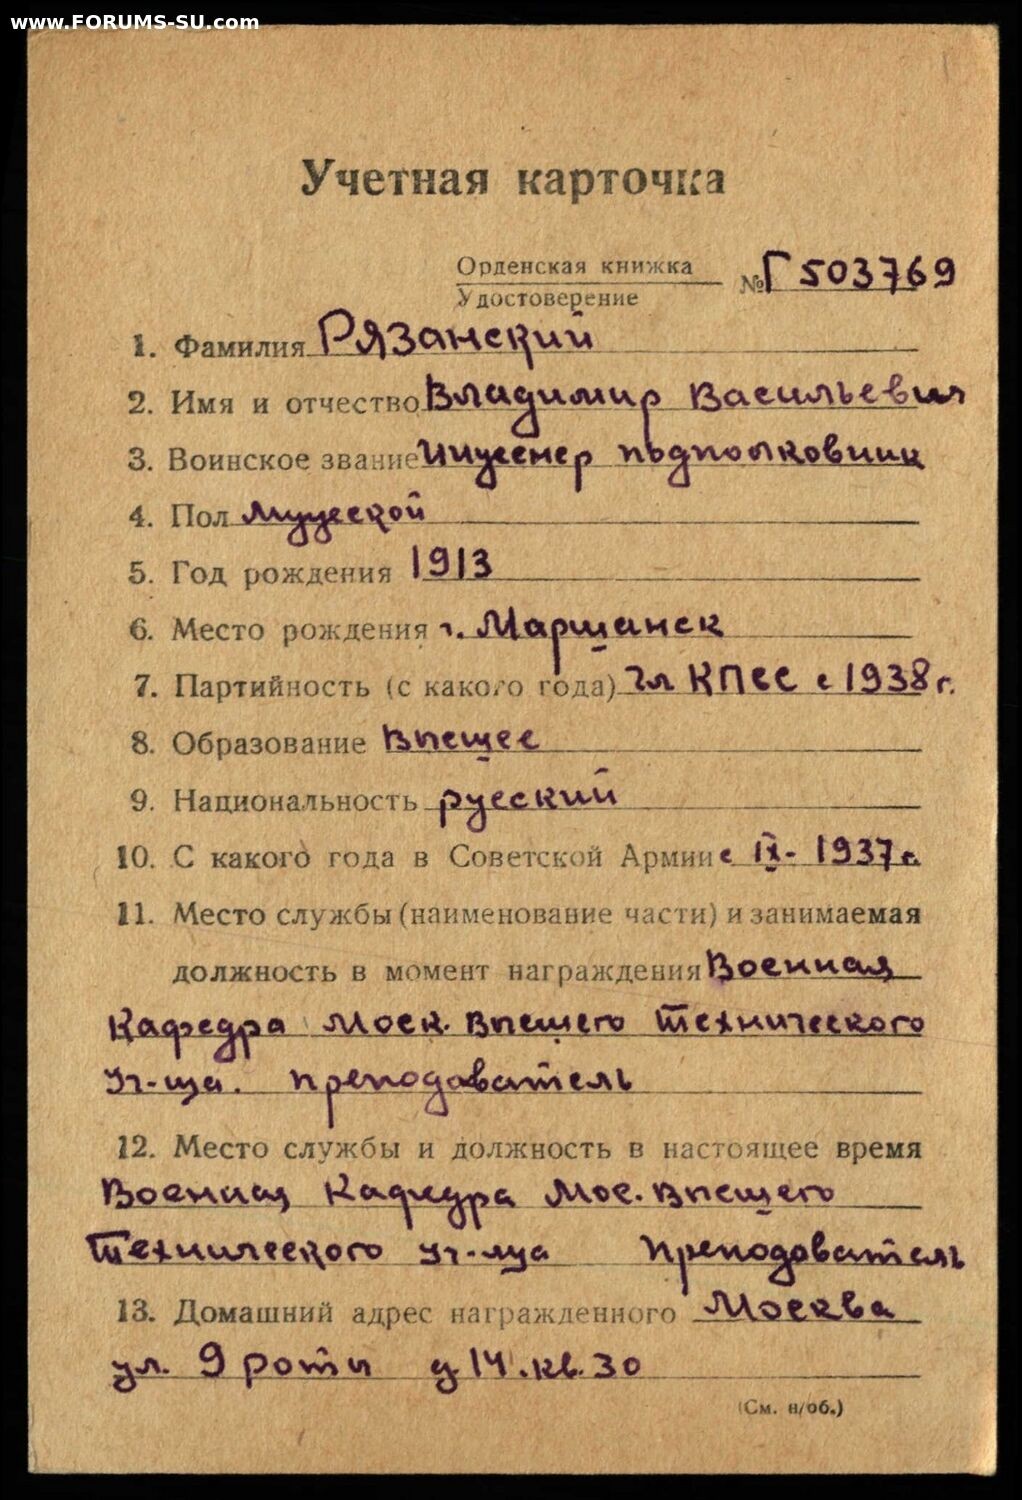 www.FORUMS-SU.com
Учетная карточка
Орденская книжка
Удостоверение
№ Г 503769
1. Фамилия Рязанский
2. Имя и отчество Владимир Васильевич
3. Воинское звание Инженер подполковник
4. Пол Мужской
5. Год рождения 1913
6. Место рождения г. Маршанск
7. Партийность (с какого года) Чл КПСС с 1938 г.
8. Образование Высшее
9. Национальность русский
10. С какого года в Советской Армии с IX - 1937 г.
11. Место службы (наименование части) и занимаемая
должность в момент награждения Военная
Кафедра Моск. Высшего Технического
Уч-ща. преподаватель
12. Место службы и должность в настоящее время
Военная Кафедра Мос. Высшего
Технического уч-ща Преподаватель
13. Домашний адрес награжденного Москва
ул. 9 роты д. 14. кв. 30
(См. н/об.)